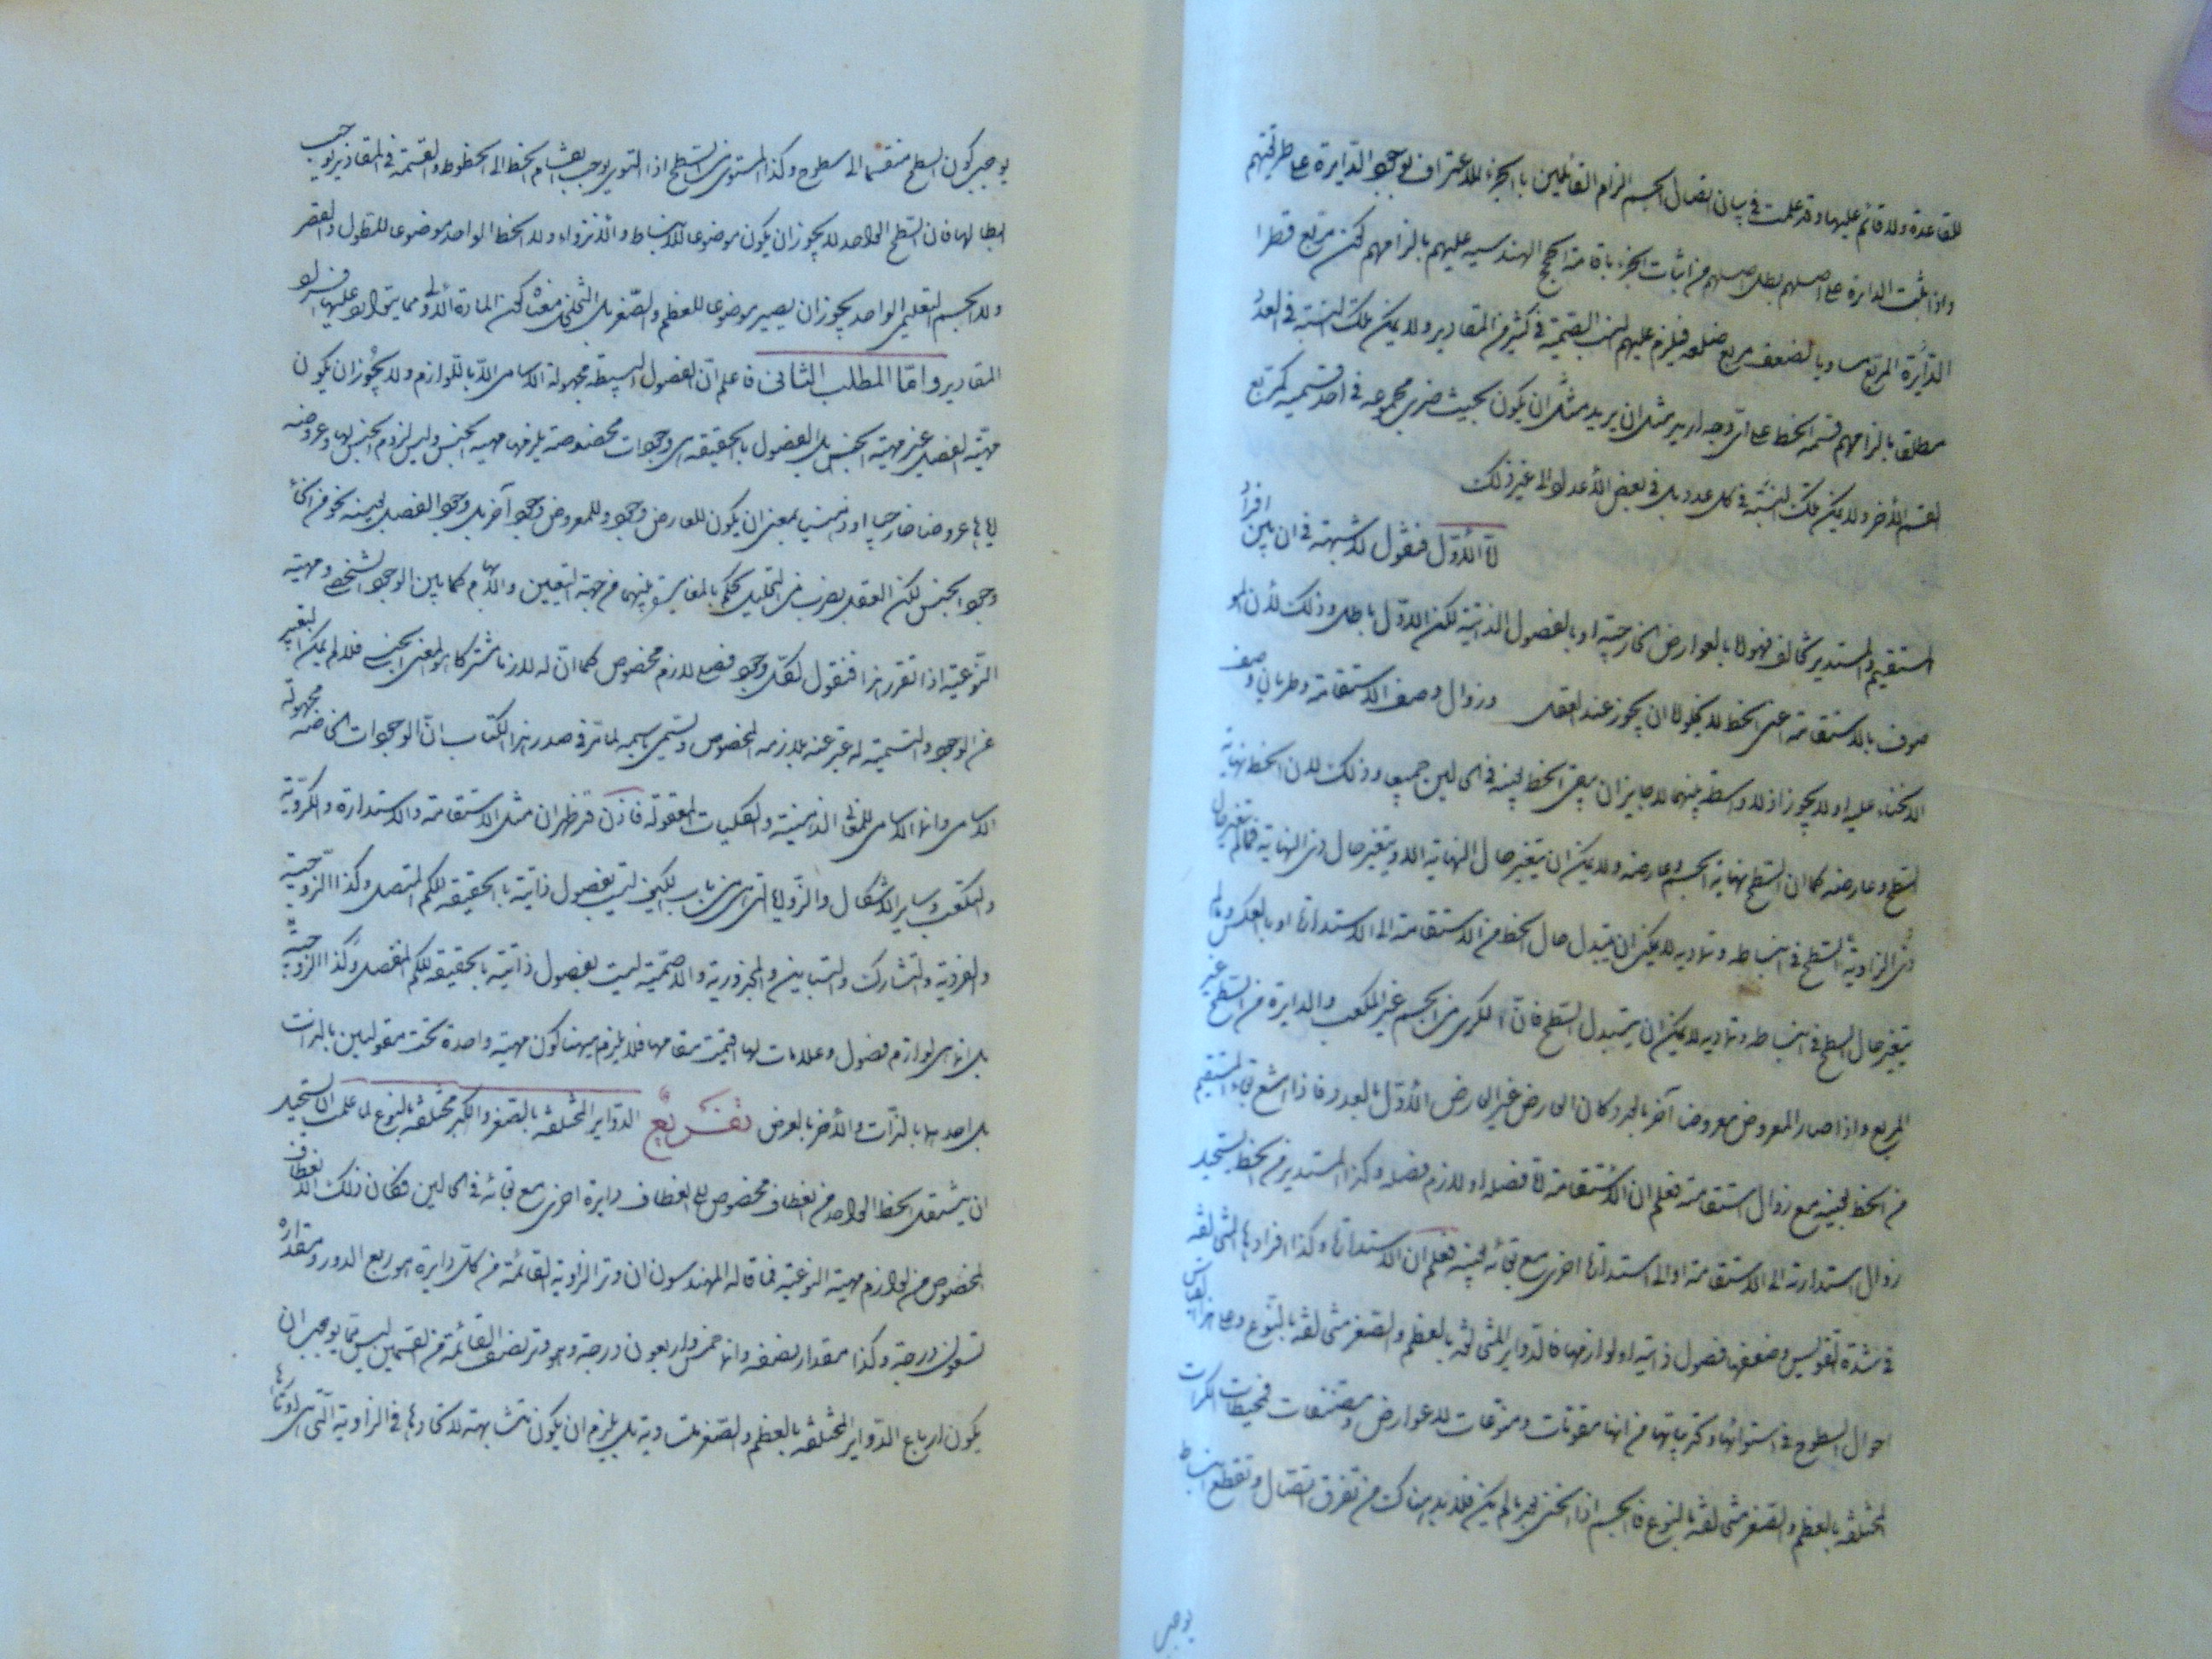 للقاعدة ولا قائم عليها وقد علمت في بيان اتصال الجسم الزام القائلين بالجزء للاعتراف بوجود الدايرة على طريقتهم
واذا ثبت الدايرة على اصلهم بطل اصلهم من اثبات الجزء باقامة الحجج الهندسيه عليهم بالزامهم كون مربع قطر
الدائرة المربع مساويا لضعف مربع ضلعه فيلزم عليهم النسب الصمية في كثير من المقادير ولا يمكن تلك النسبة في العدد
مطلقا بالزامهم قسمة الخط على اى وجه اريد مثل ان يريد مثلا ان يكون بحيث ضرب مجموعه في احد قسميه كمربع
القسم الآخر ولا يمكن تلك النسبة في كل عدد بل في بعض الأعداد الى غير ذلك
الأول فنقول لا شبهة في ان بين افراد
المستقيم والمستدير تخالف فهو اما بالعوارض الخارجية او بالفصول الذاتية لكن الاول باطل وذلك لأن المو
صوف بالاستقامة اعنى الخط لا يخلو اما ان يجوز عند العقل وزوال وصف الاستقامة وطريان وصف
الانحناء عليه او لا يجوز اذ لا واسطة بينهما لا جايز ان يبقى الخط بعينه في الحالين جميعا وذلك لان الخط نهاية
السطح وعارضه كما ان السطح نهاية الجسم وعارضه ولا يمكن ان يتغير حال النهاية الا ويتغير حال ذى النهاية فما لم يتغير حال
السطح في انبساطه وتماديه لا يمكن ان يتبدل حال الخط من الاستقامة الى الاستدارة او بالعكس وما لم
يتغير حال السطح في انبساطه وتماديه لا يمكن ان يتبدل السطح فان الكرى من الجسم غير المكعب والدايرة من السطح غير
المربع واذا صار المعروض معروضا آخر بالعدد كان العارض غير العارض الأول بالعدد فاذا امتنع بقاء المستقيم
من الخط بعينه مع زوال استقامته فعلم ان الاستقامة اما فصله او لازم فصله وكذا المستدير من الخط يستحيل
زوال استدارته الى الاستقامة او الى استدارة اخرى مع بقائه بعينه فعلم ان الاستدارة وكذا افرادها المتخالفة
في شدة التقويس وضعفها فصول ذاتية او لوازمها فالدواير المتخالفة بالعظم والصغر متخالفة بالنوع وعلى هذا القياس
احوال السطوح في استوائها وتحدباتها من انها مقومات ومنوعات لا عوارض ومصنفات فمحيطات الكرات
المختلفة بالعظم والصغر متخالفة بالنوع فالجسم اذا انحنى بعد ما لم يكن فلا بد هناك من تفرق اتصال وتقطع انبساط
يوجب
يوجب كون السطح منقسما الى سطوح وكذا المستوى من السطح اذا التوى يوجب انقسام الخط الى الخطوط والقسمة في المقادير يوجب
ابطالها فان السطح الواحد لا يجوز ان يكون موضوعا للانبساط والانزواء ولا الخط الواحد موضوعا للطول والقصر
ولا الجسم التعليمى الواحد يجوز ان يصير موضوعا للعظم والصغر بل المادة الأولى مما يتوارد عليها افراد
المقادير واما المطلب الثانى فاعلم ان الفصول البسيطة مجهولة الاسامى الا باللوازم ولا يجوز ان يكون
مهية الفصل غير مهية الجنس بل الفصول بالحقيقة هى وجودات مخصوصة يلزمها مهية الجنس وليس لزوم الجنس لها وعروضه
اياها عروضا خارجيا او ذهنيا بمعنى ان يكون للعارض وجود وللمعروض وجود آخر بل وجود الفصل بعينه نحو من انحاء
وجود الجنس لكن العقل بضرب من التحليل يحكم بالمغايرة بينهما من جهة التعين والابهام كما بين الوجود الشخصى ومهيته
النوعية اذا تقرر هذا فنقول لكل وجود فصلى لازم مخصوص كما ان له لازما مشتركا هو المعنى الجنسى فلما لم يمكن التعبير
عن الوجود والتسمية له عبر عنه بلازمه المخصوص وتسمى باسمه لما مر في صدر هذا الكتاب ان الوجودات الخاصة مجهولة
الاسامى وانما الاسامى للمعانى الذهنية والكليات المعقولة فاذن قد ظهر ان مثل الاستقامة والاستدارة والكروية
والتكعيب وساير الاشكال والزوايا التى هى من باب الكيف ليست بفصول ذاتية بالحقيقة للكم المتصل وكذا الزوجية
والفردية والتشارك والتباين والمجذورية والاصمية ليست بفصول ذاتية بالحقيقة للكم المنفصل وكذا الزوجية
بل انها هى لوازم فصول وعلامات لها اقيمت مقامها فلا يلزم ههنا كون مهية واحدة تحت مقولتين بالذات
بل احديهما بالذات والأخر بالعرض تفريع الدواير المختلفة بالصغر والكبر مختلفة بالنوع لما علمت انه يستحيل
ان ينتقل الخط الواحد من انعطاف مخصوص الى انعطاف دايرة اخرى مع بقائه في الحالين فكان ذلك الانعطاف
المخصوص من لوازم مهيته النوعية فما قاله المهندسون ان وتر الزاوية القائمة من كل دايرة هو ربع الدور ومقداره
تسعون درجة وكذا مقدار نصفه وانها خمس واربعون درجة وهو وتر نصف القائمة من القسمين ليس مما يوجب ان
يكون ارباع الدواير المختلفة بالعظم والصغر متساوية بل يلزم ان يكون متشابهة لاتحادها في الزاوية التى هى اوتارها